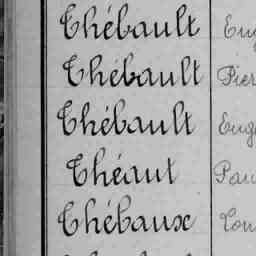 Thébault Eug
Thébault Pier
Thébault Eugè
Théaut Pau
Thébaux Lou